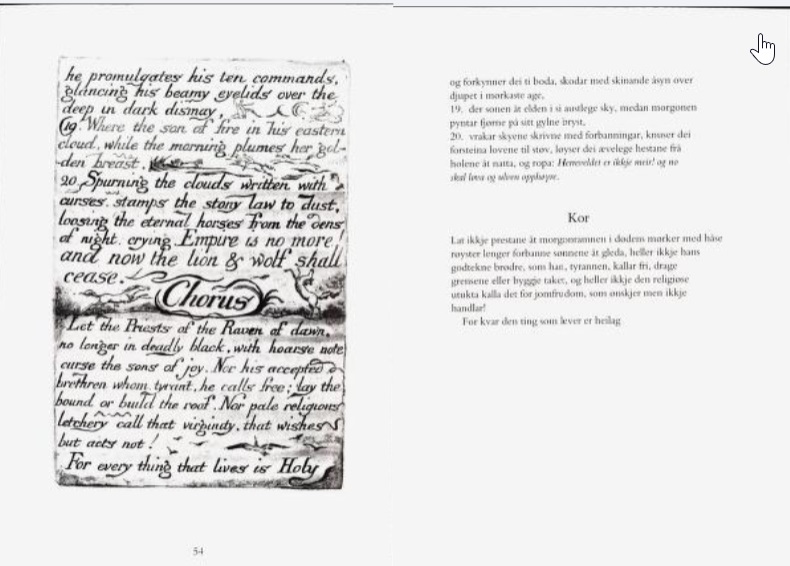 he promulgates his ten commands,
glancing his beamy eyelids over the
deep in dark dismay,
19. Where the son of fire in his eastern
cloud, while the morning plumes her gol-
-den breast,
20. Spurning the clouds written with
curses, stamps the stony law to dust,
loosing the eternal horses from the dens
of night, crying, Empire is no more!
and now the lion & wolf shall
cease.
Chorus
Let the Priests of the Raven of dawn,
no longer in deadly black, with hoarse note
curse the sons of joy. Nor his accepted
brethren whom, tyrant, he calls free; lay the
bound or build the roof. Nor pale religious
letchery call that virginity, that wishes
but acts not!
For every thing that lives is Holy
54
og forkynner dei ti boda, skodar med skinande åsyn over
djupet i mørkaste age,
19. der sonen åt elden i si austlege sky, medan morgonen
pyntar fjørne på sitt gylne bryst,
20. vrakar skyene skrivne med forbanningar, knuser dei
forsteina lovene til støv, løyser dei ævelege hestane frå
holene åt natta, og ropa: Herreveldet er ikkje meir! og no
skal løva og ulven opphøyre.
Kor
Lat ikkje prestane åt morgonramnen i dødens mørker med håse
røyster lenger forbanne sønnene åt gleda, heller ikkje hans
godtekne brødre, som han, tyrannen, kallar fri, drage
grensene eller byggje taket, og heller ikkje den religiøse
utukta kalla det for jomfrudom, som ønskjer men ikkje
handlar!
For kvar den ting som lever er heilag